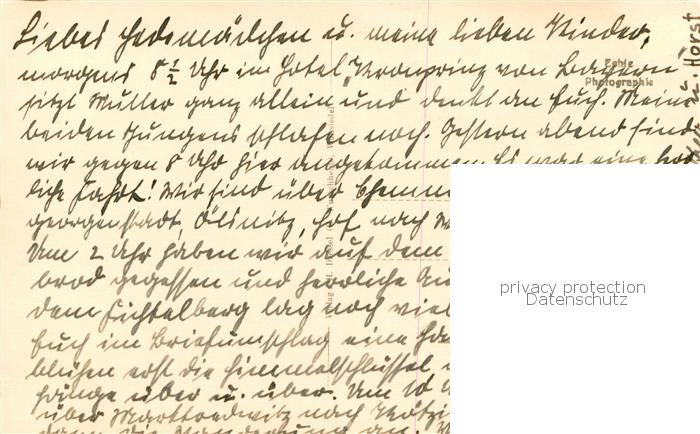 Liebes Hedemädchen u. meine lieben Kinder,
morgens 8 1/2 Uhr im Hotel "Kronprinz von Bayern
sitzt Mutter ganz allein und denkt an Euch. Meine
beiden Jungens schlafen noch. Gestern abend sind
wir gegen 8 Uhr hier angekommen. Es war eine herr-
liche Fahrt! Wir sind über Chemn
georgenstadt, Ölsnitz, Hof nach
Um 2 Uhr haben wir auf dem
brod gegessen und herrliche
dem Fichtelberg lag noch viel
Euch im Briefumschlag eine
blühen erst die Himmelschlüssel,
über u. über. Um 10
über Marktredwitz nach
dann die Wanderung an.
Echte
Photographie
Horst
privacy protection
Datenschutz